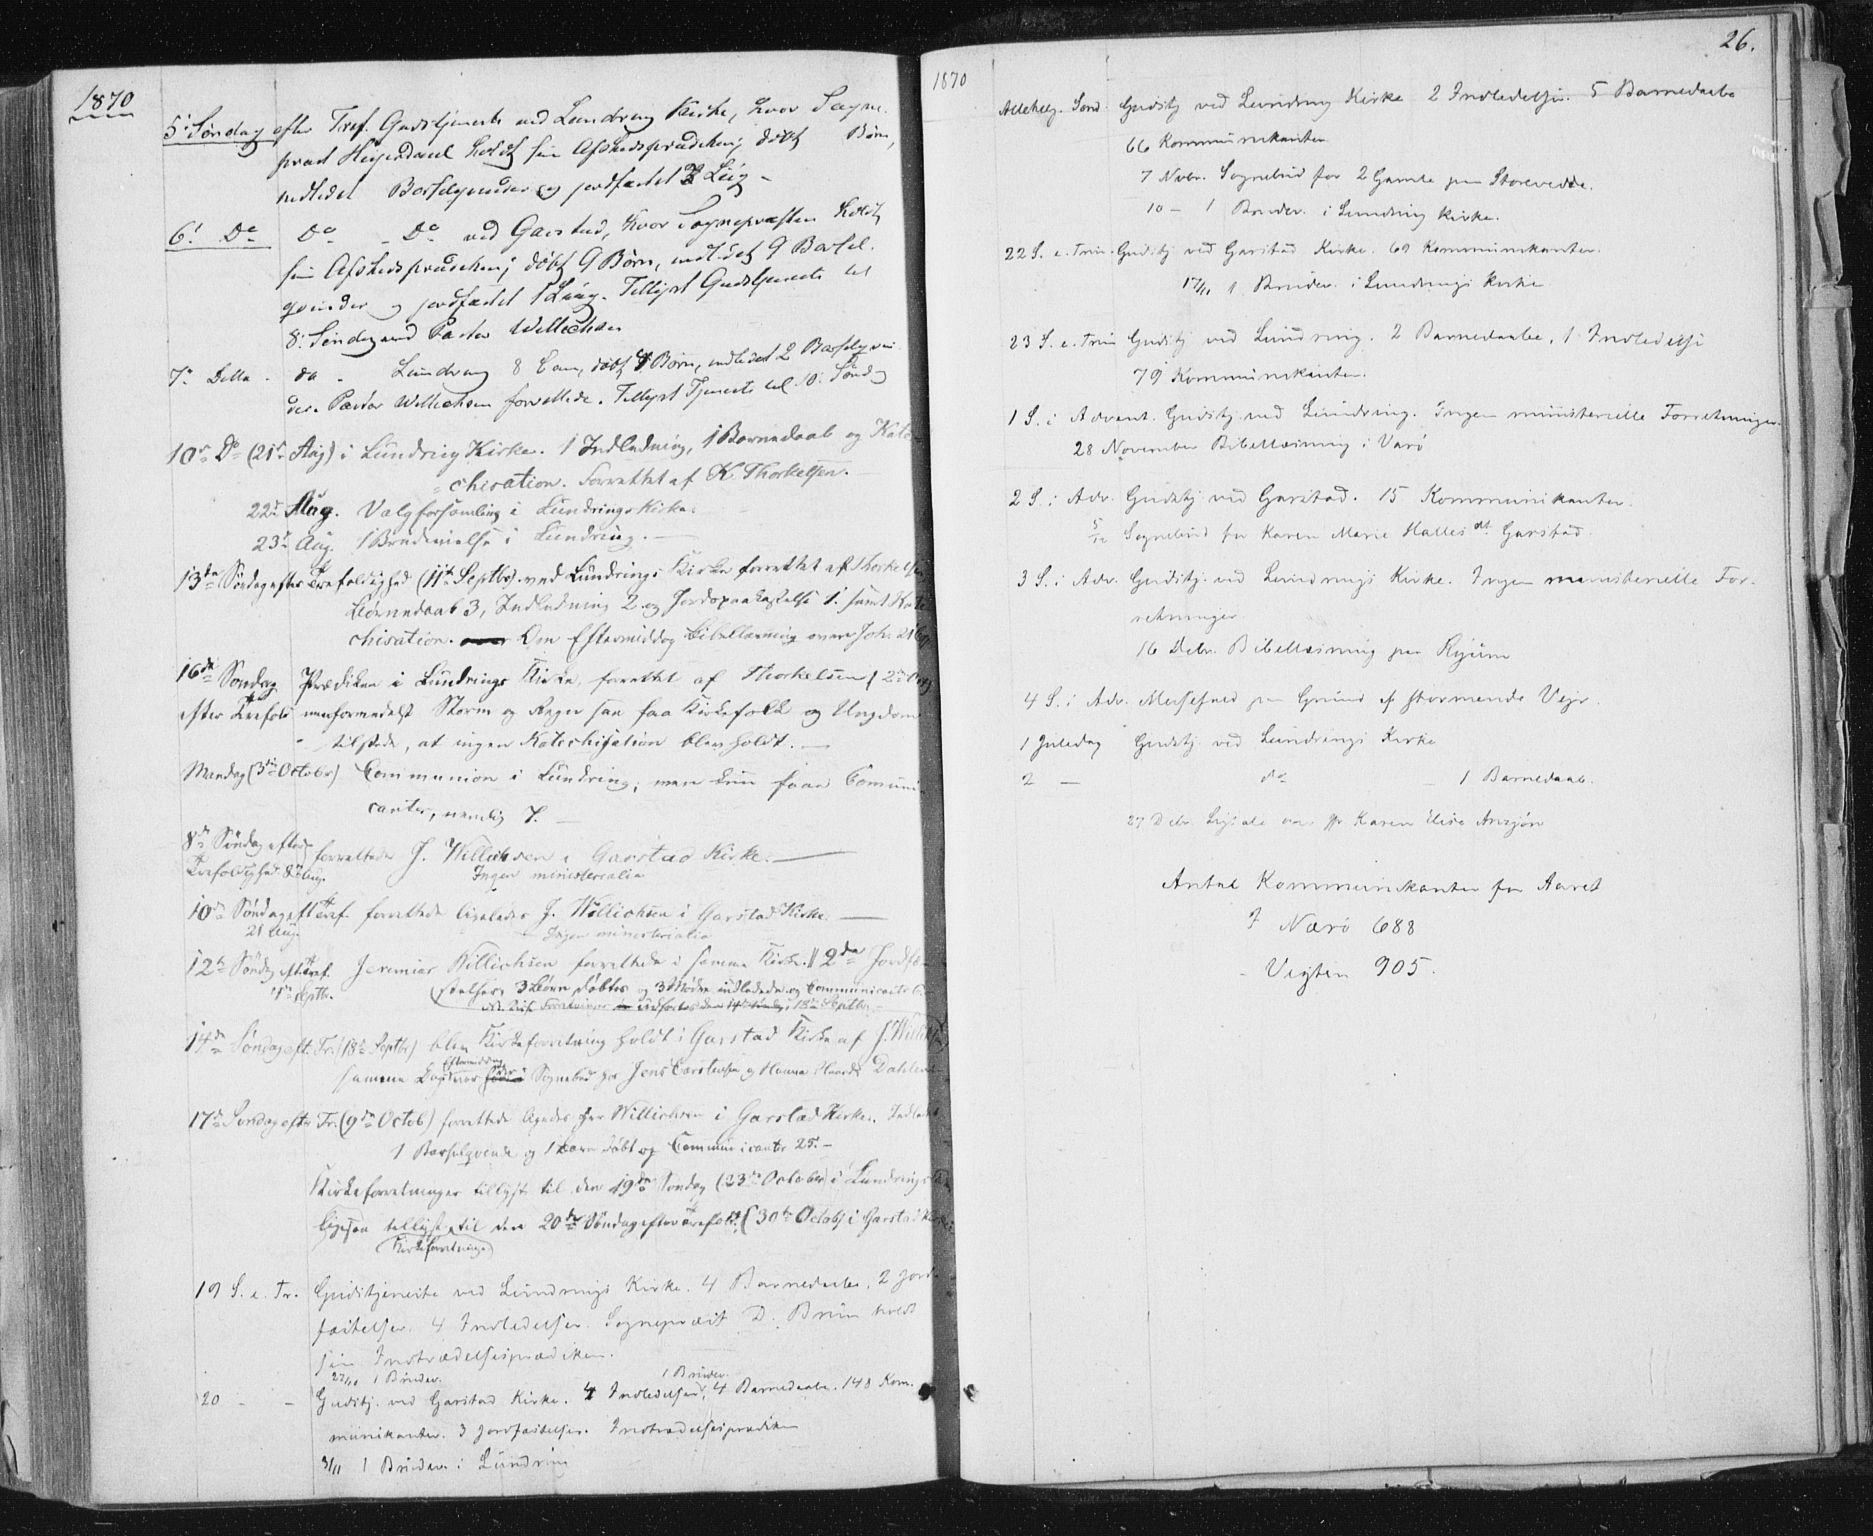 1870
5' Søndag efter Tref. Gudstjeneste ved Lundring Kirke, hvor Sogne-
præst Heyerdahl holdt sin Afskedsprædiken; døbt Børn,
indledet Barselqvinder og jordfæstet 2 Liig -
6! Do Do - Do ved Garstad, hvor Sognepræsten holdt
sin Afskedsprædiken; døbt 9 Børn, indledet 9 Barsel-
qvinder og jordfæstet 1 Liig. Tillyst Gudstjeneste til
8: Søndag ved Pastor Willichsen
7de Ditto - do - Lundring 8 Com, døbt 4 Børn, indledet 2 Barselqvin-
der. Pastor Willichsen forrettede. Tillyst Tjeneste til 10: Søndag
10de Do (21de Aug) i Lundring Kirke. 1 Indledning, 1 Barnedaab og Kate-
chisation. Forrettet af K Thorkelsen. -
22de Aug. Valgforsamling i Lundrings Kirke.
23de Aug. 1 Brudevielse i Lundring. -
13de Søndag efter Trefoldighed (11te Septbr) ved Lundrings Kirke forrettet af Thorkelsen
Børnedaab 3, Indledning 2 og Jordspaakastelse 1. samt Kate
chisation. Om Eftermiddag Bibellæsning over Joh. 21 Cap
16de Søndag Prædiken i Lundrings Kirke, forrettet af Thorkelsen (2de Oct)
efter Trefold. men formedelst Storm og Regn saa faa Kirkefolk og Ungdom
tilstede, at ingen Katechisation blev holdt. -
Mandag (3die Octobr) Communion i Lundring; men kun faae Comuni-
canter, nemlig 7. -
8de Søndag efter forrettede J. Willichsen i Garstad Kirke. -
Trefoldighed 8 Aug. Ingen ministerialia
10de Søndag eft Tref. forrettede ligeledes J. Willichsen i Garstad Kirke. -
21 Aug. Ingen ministerialia
12te Søndag eft Tref. Jeremias Willichsen forrettede i samme Kirke. 2de Jordfæ-
4de Septbr. stelser, 3 Børn døbtes og 3 Mødre indlededes og Communicanter
14de Søndag eft. Tr. (18de Septbr) blev Kirkeforretning holdt i Garstad Kirke af J. Willichsen
Eftermiddag
samme Dag var Sognebud for Jens Carstensen og Hanna Dahlen
17de Søndag efter Tr. (9de Octob) forrettede ligedes Hr Willichsen i Garstad Kirke. Indledt
1 Barselqvende og 1 Barn døbt og Communicanter 25. -
Kirkeforretninger tillyst til den 19de Søndag (23de October) i Lundrings
ligesaa tillyst til den 20de Søndag efter Trefold. (30te Octob) i Garstad Kirke
Kirkeforretninger
19 S. e. Tr. Gudstjeneste ved Lundrings Kirke. 4 Barnedaabe, 2 Jord-
fæstelser. 4 Indledelser. Sognepræst D. Bruun holdt
sin Indtrædelsesprædiken.
27/10 1 Brudev. 1 Brudev.
20 - - Gudstj. ved Garstad Kirke. 4 Indledelser, 4 Barnedaabe. 148 Kom-
munikanter. 3 Jordfæstelser. Indtrædelsesprædiken
3/11 1 Brudev. i Lundring
1870
26.
Allehelg. Sønd. Gudstj ved Lundring Kirke 2 Indledelser. 5 Barnedaabe
66 Kommunikanter
7 Novbr. Sognebud for 2 Gamle paa Storevedde.
10 - 1 Brudev. i Lundring Kirke.
22 S. e. Trin. Gudstj ved Garstad Kirke. 69 Kommunikanter.
17/11 1 Brudev. i Lundrings Kirke
23 S. e. Trin Gudstj ved Lundring. 2 Barnedaabe, 1 Indledelse
79 Kommunikanter.
1 S. i Advent. Gudstj. ved Lundring. Ingen ministerielle Forretninger.
28 November Bibellæsning i Varø
2 S. i Adv. Gudstj ved Garstad. 15 Kommunikanter.
5/12 Sognebud for Karen Marie Halles dt. Garstad.
3 S. i Adv. Gudstj. ved Lundrings Kirke. Ingen ministerielle For-
retninger
16 Debr. Bibellæsning paa Ryum
4 S. i Adv. Messefald paa Grund af stormende Vejr.
1 Juledag Gudstj ved Lundrings Kirke
2 - do - 1 Barnedaab.
27 Debr. Ligtale over Karen Elise
Antal Kommunikanter for Aaret
I Nærö 688
- Vigten 905.